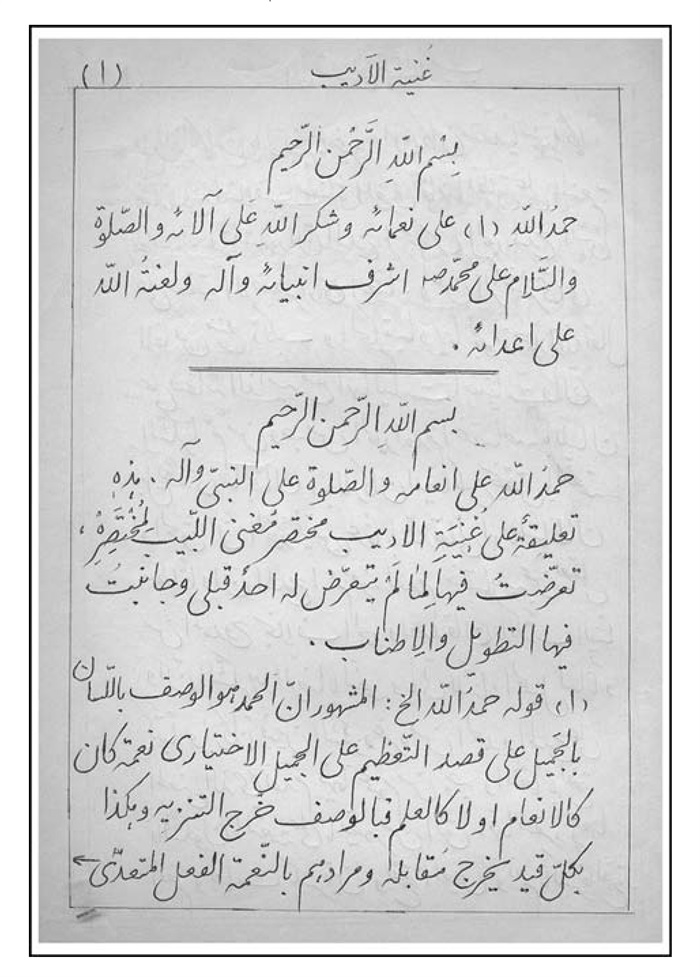 غُنیة الاَدیب (۱)
بِسْمِ اللّهِ الرَّحْمنِ الرَّحیم
حمدُ اللّه (۱) علی نعمائه وشکر اللّهِ عَلی آلائه والصّلوة
والسَّلام علی محمّد ص اشرف انبیائه وآله ولعنةُ اللّه
علی اعدائه .
بسم اللّه الرّحمن الرّحیم
حمدُ اللّه علی انعامه والصّلوة علی النبیّ وآله . هذِهِ
تعلیقةٌ علی غُنیَةِ الادیب مختصر مُغنی اللّبیب لِمُخْتَصِرِهِ ،
تعرّضتُ فیها لِمٰا لَمْ یتعرّض له احدٌ قبلی وجانَبتُ
فیها التطویل والاِطناب .
(۱) قوله حمدُ اللّه الخ : المشهور انّ الحمد هو الوصف باللّسان
بالجَمیل علی قصد التّعظیم علی الجمیل الاختیاری نعمة کان
کالانعام او لا کالعلم فبالوصف خرج التنزیه وهکذا
بکلّ قید یخرج مُقابله ومرادهم بالنّعمة الفعل المتعدّی ←